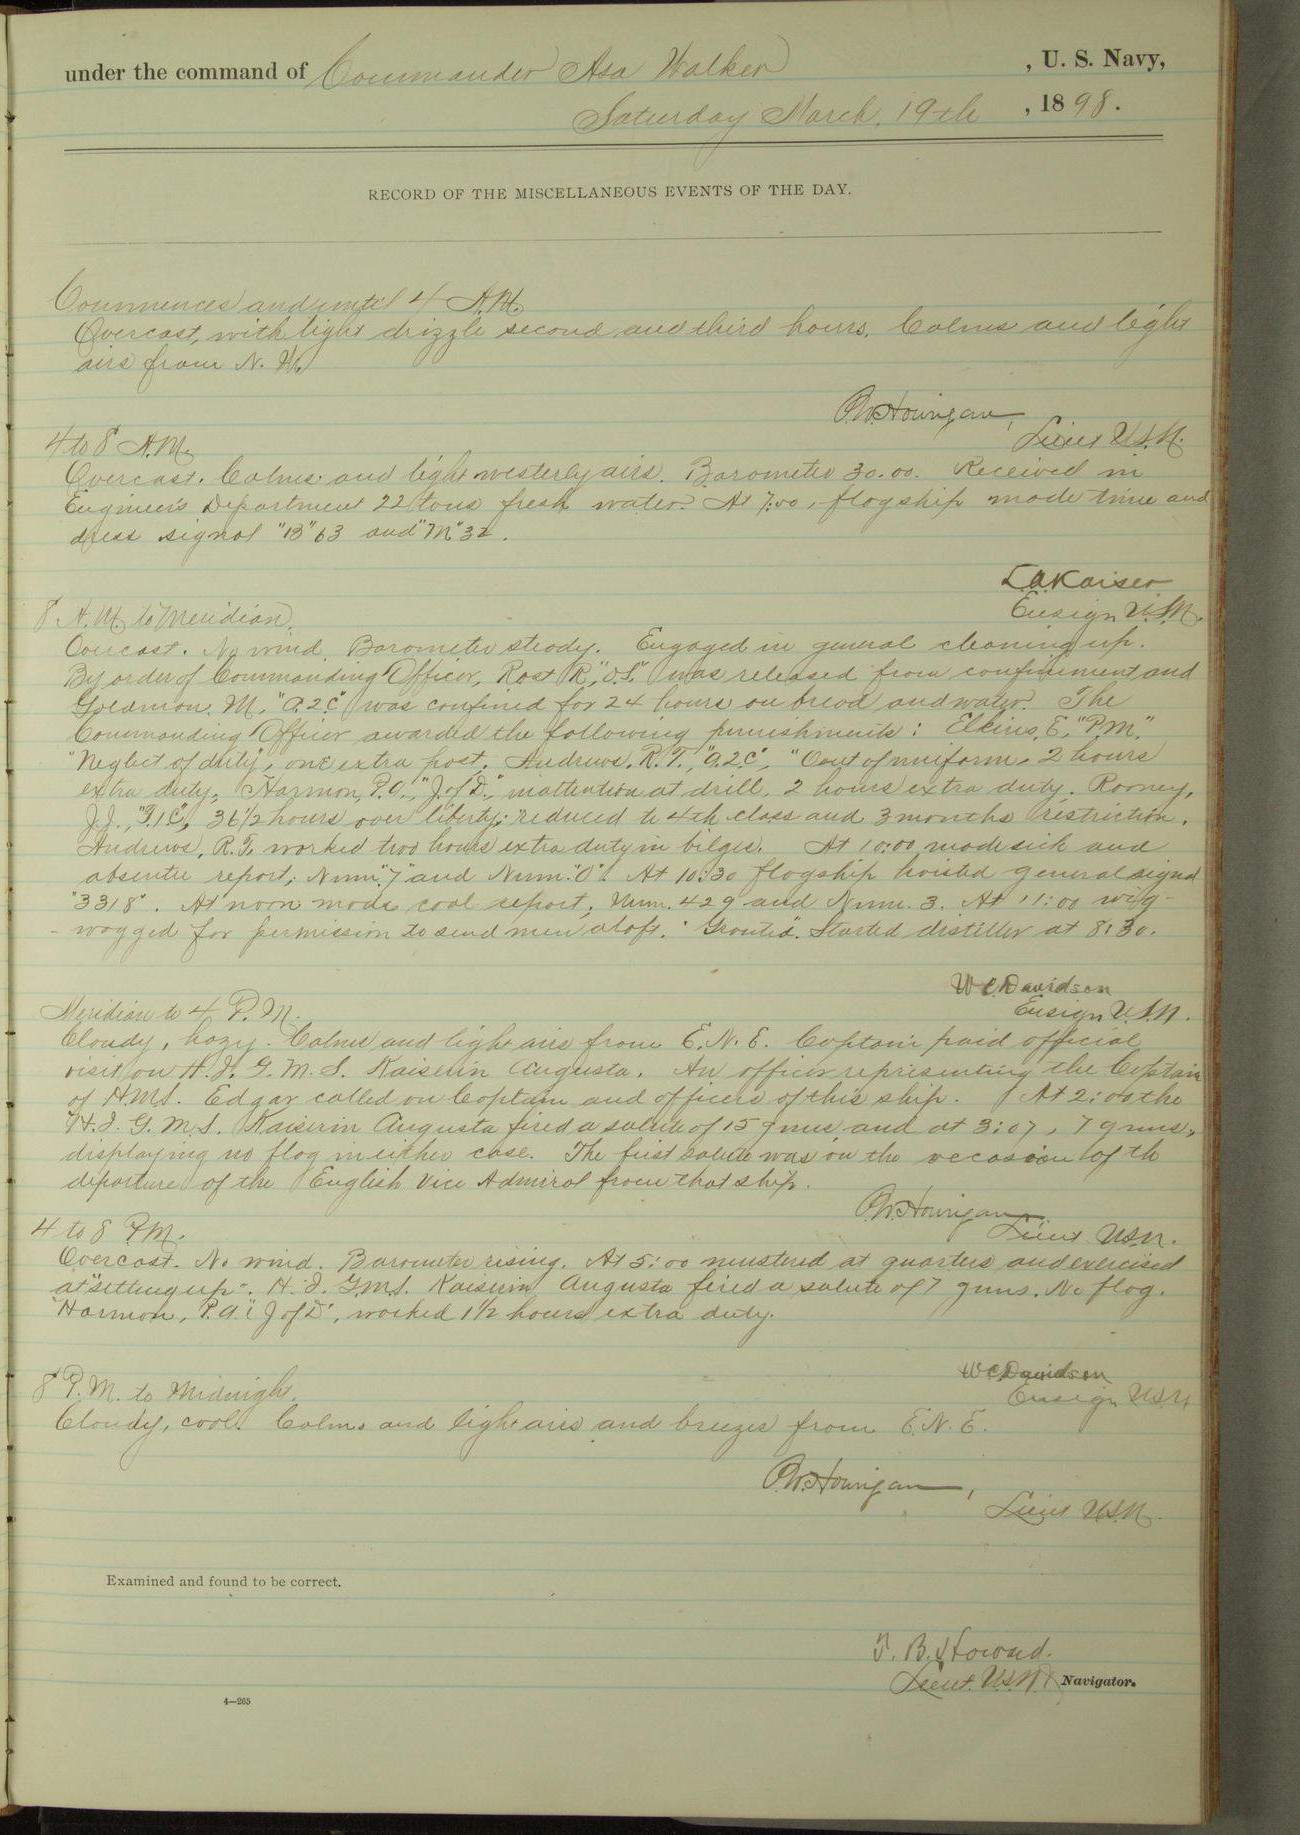 under the command of Commander Asa Walker , U. S. Navy,
Saturday March, 19th , 1898.
RECORD OF THE MISCELLANEOUS EVENTS OF THE DAY.
Commences and until 4 A.M.
Overcast, with light drizzle second and third hours. Calms and light
airs from N. W.
O.W. Hourigan,
Lieut U.S.N.
4 to 8 A.M.
Overcast. Calms and light westerly airs. Barometer 30.00. Received in
Engineer's Department 22 tons fresh water. At 7:00, flagship made time and
dress signal "B" 63 and "M" 32.
L.A. Kaiser
Ensign U.S.N.
8 A.M. to Meridian.
Overcast. No wind. Barometer steady. Engaged in general cleaning up.
By order of Commanding Officer, Rost R, "O.S." was released from confinement and
Goldmon. M. "a.2.C" was confined for 24 hours on bread and water. The
Commanding Officer awarded the following punishments: Elkins, E, "P.M."
"Neglect of duty", one extra post. Andrews, R.T., "a.2.C", "Out of uniform, 2 hours
extra duty, Harmon, P.A., "J. of D.", inattention at drill, 2 hours extra duty. Rooney,
J.J., "F.1C", 36 1/2 hours over liberty; reduced to 4th class and 3 months restriction.
Andrews, R.T. worked two hours extra duty in bilges. At 10:00 made sick and
absentee report; Num. "7" and Num. "0". At 10:30 flagship hoisted general signal
"3318". At noon made coal report; Num. 429 and Num. 3. At 11:00 wig-
-wagged for permission to send men aloft. "Granted". Started distiller at 8:30.
W C Davidson
Ensign U.S.N.
Meridian to 4 P.M.
Cloudy, hazy. Calms and light airs from E.N.E. Captain paid official
visit on H.I.G.M.S. Kaiserin Augusta. An officer representing the Captain
of HMS. Edgar called on Captain and officers of this ship. At 2:00 the
H.I.G.M.S. Kaiserin Augusta fired a salute of 15 guns and at 3:07, 7 guns,
displaying no flag in either case. The first salute was on the occasion of th
departure of the English Vice Admiral from that ship.
O.W. Hourigan
Lieut U.S.N.
4 to 8 P.M.
Overcast. No wind. Barometer rising. At 5:00 mustered at quarters and exercised
at "setting up". H.I.G.M.S. Kaiserin Augusta fired a salute of 7 guns. No flag.
Harmon, P.A. "J of D", worked 1 1/2 hours extra duty.
W C Davidson
Ensign U.S.N.
8 P.M. to Midnight.
Cloudy, cool. Calms and light airs and breezes from E.N.E.
O.W. Hourigan,
Lieut U.S.N.
Examined and found to be correct.
T. B. Howard.
Lieut. U.S.N. Navigator.
4—265